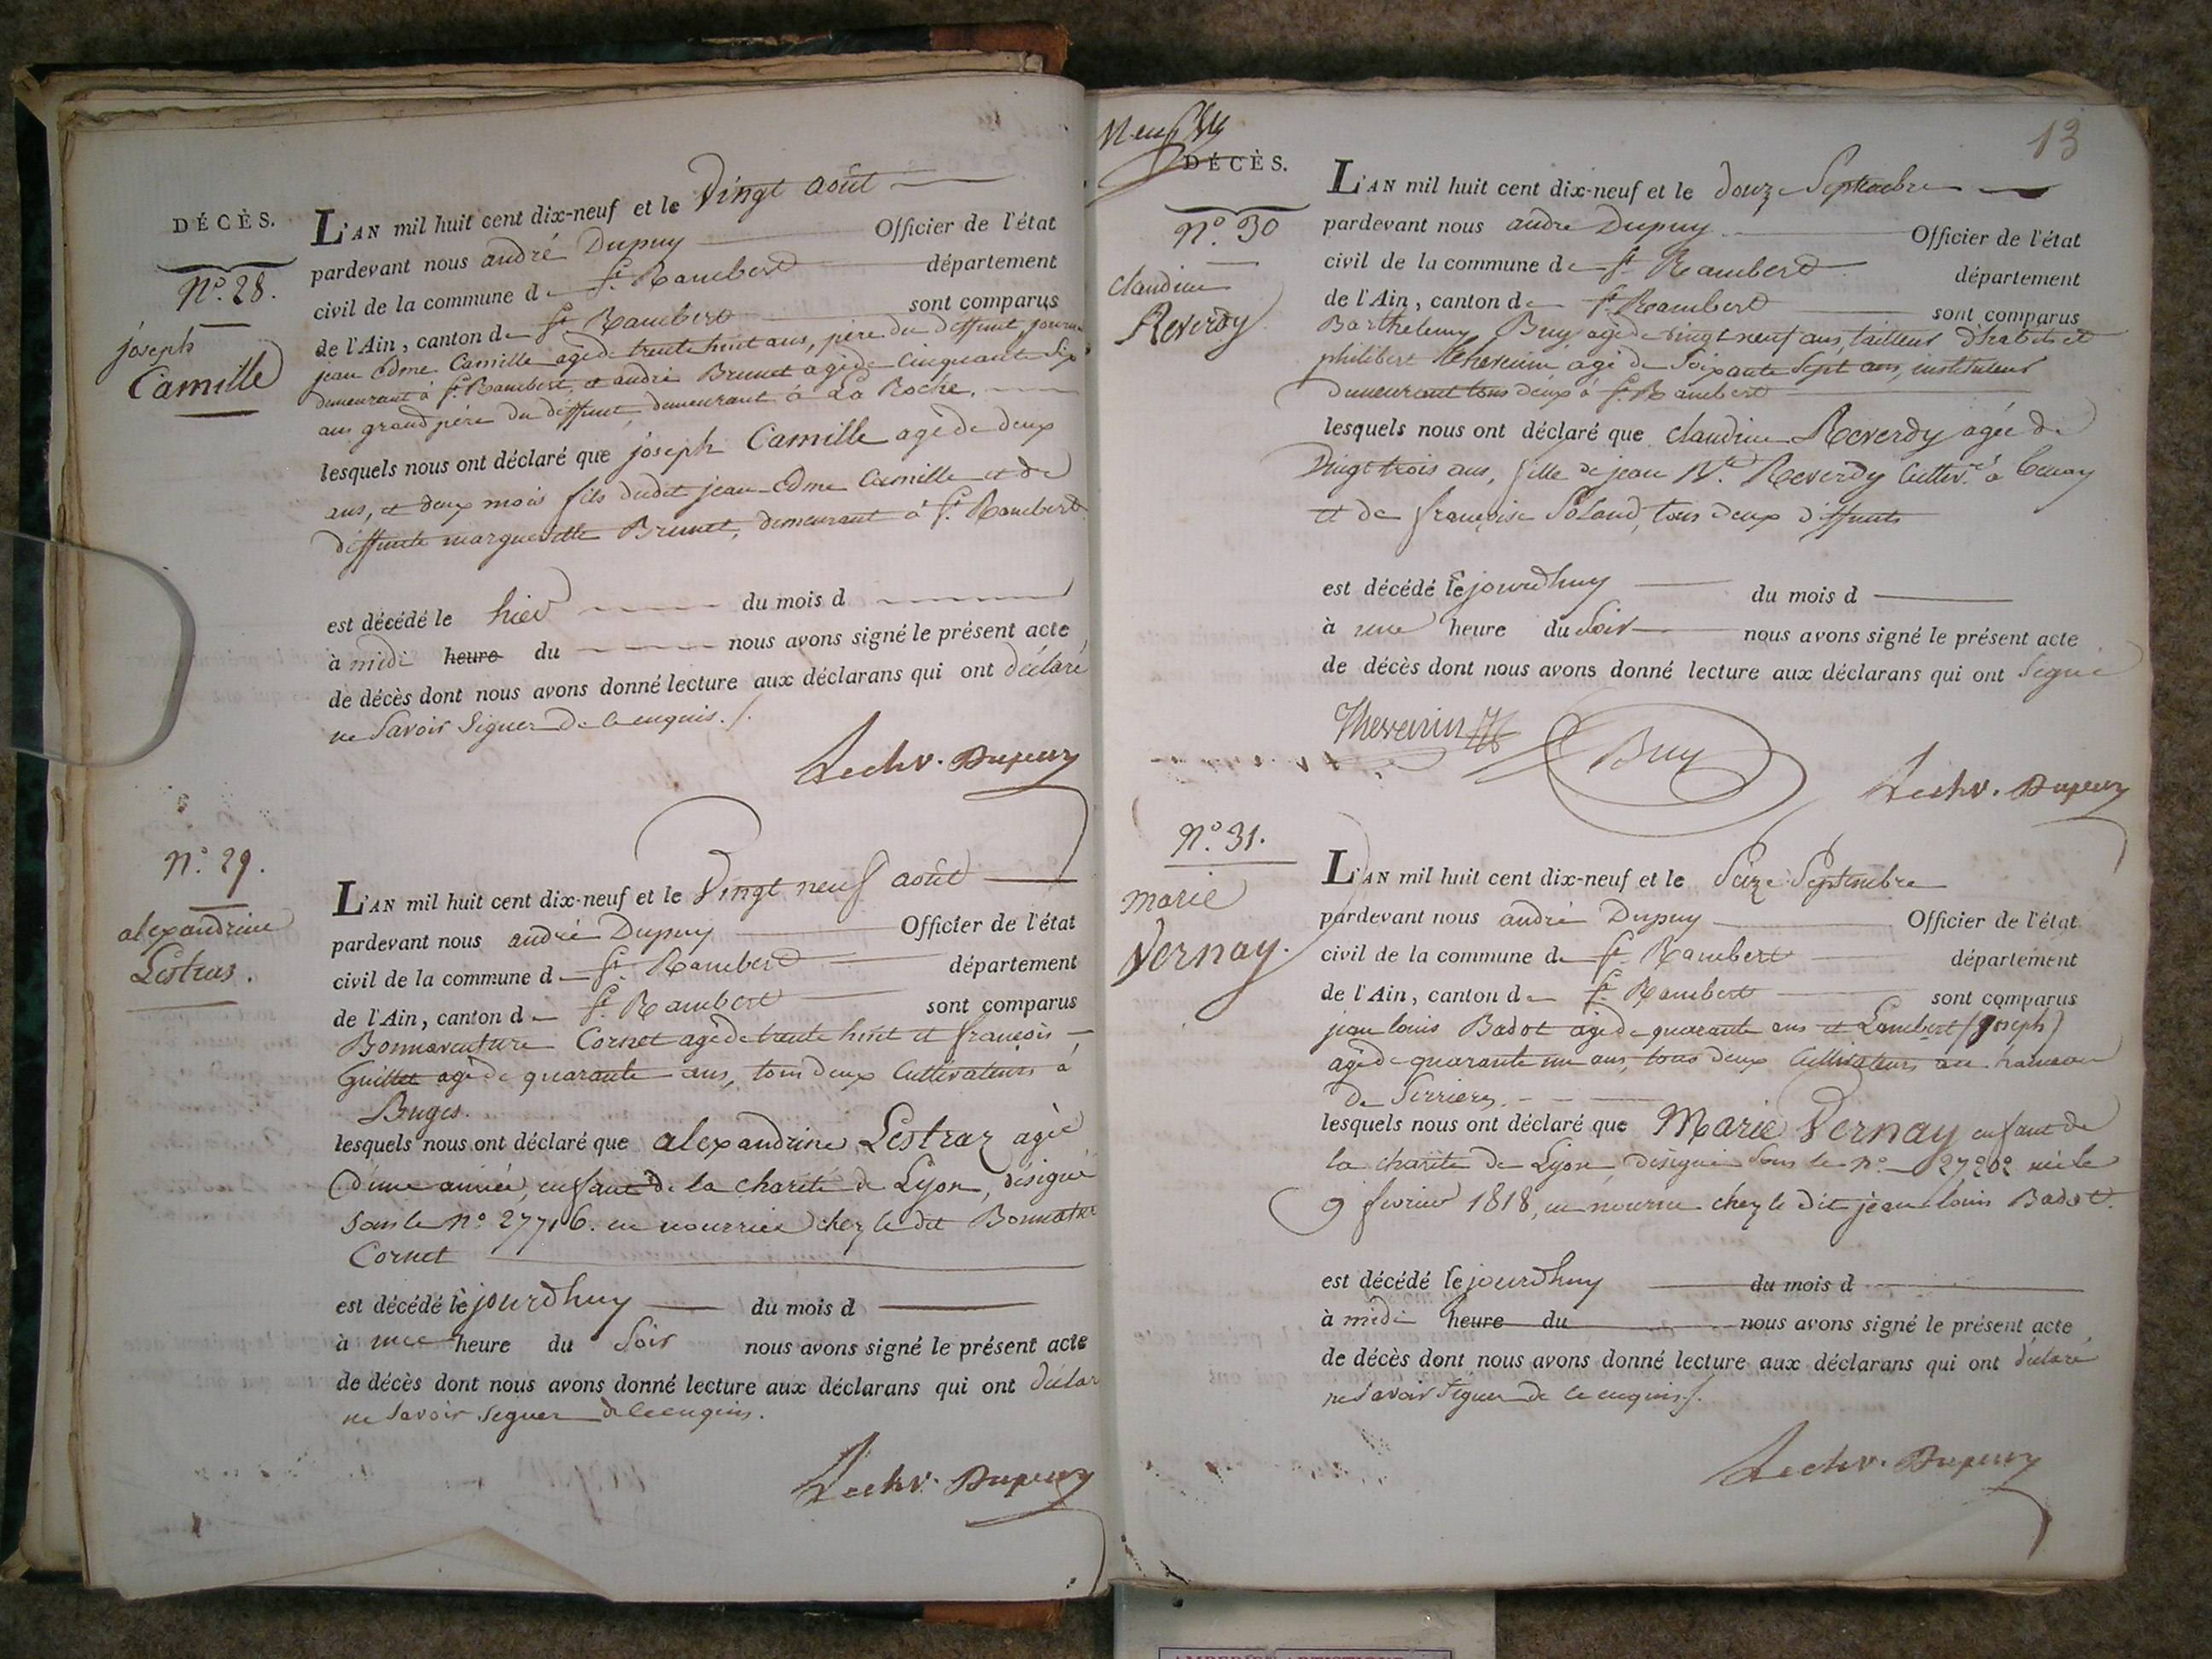 DÉCÈS.
N.° 28.
joseph
Camille
L'AN mil huit cent dix-neuf et le Vingt août
pardevant nous andré Dupuy Officier de l'état
civil de la commune de St. Rambert département
de l'Ain, canton de St. Rambert sont comparus
jean Edme Camille agé de trente huit ans, père du deffunt,
demeurant à St. Rambert, et andré Brunet agé de Cinquante Six
ans grand père du deffunt, demeurant à La Roche.
lesquels nous ont déclaré que joseph Camille agé de deux
ans, et deux mois fils dudit jean Edme Camille et de
deffunte margueritte Brunet, demeurant à St. Rambert
est décédé le hier du mois d
à midi heure du nous avons signé le présent acte
de décès dont nous avons donné lecture aux déclarans qui ont déclaré
ne Savoir Signer de ce enquis./.
Dupuy
N.° 29.
alexandrine
Lestras.
L'AN mil huit cent dix-neuf et le Vingt neuf août
pardevant nous andré Dupuy Officier de l'état
civil de la commune de St. Rambert département
de l'Ain, canton de St. Rambert sont comparus
Bonnaventure Cornet agé de trente huit et françois
Guillet agé de quarante ans, tous deux Cultivateurs à
Buges.
lesquels nous ont déclaré que alexandrine Lestraz agée
d'une année, enfant de la charité de Lyon, désigné
sous le N° 27716. en nourrice chez le dit Bonnatre
Cornet
est décédé le jourdhuy du mois d
à une heure du Soir nous avons signé le présent acte
de décès dont nous avons donné lecture aux déclarans qui ont déclar
ne Savoir Signer de ce enquis.
Dupuy
13
DÉCÈS.
N.° 30
claudine
Reverdy
L'AN mil huit cent dix-neuf et le douze Septembre
pardevant nous andré Dupuy Officier de l'état
civil de la commune de St. Rambert département
de l'Ain, canton de St. Rambert sont comparus
Barthelemy Buy agé de vingt neuf ans, tailleur d'habits et
philibert Thevenin agé de Soixante Sept ans, instituteur
demeurant tous deux à St. Rambert
lesquels nous ont déclaré que claudine Reverdy agée de
Vingt trois ans, fille de jean Reverdy Cultiv.r à
et de françoise tous deux deffunts
est décédé le jourdhuy du mois d
à une heure du Soir nous avons signé le présent acte
de décès dont nous avons donné lecture aux déclarans qui ont Signé
Thevenin Buy
Dupuy
N.° 31.
marie
Vernay.
L'AN mil huit cent dix-neuf et le Seize Septembre
pardevant nous andré Dupuy Officier de l'état
civil de la commune de St. Rambert département
de l'Ain, canton de St. Rambert sont comparus
jean louis Badot agé de quarante ans et Lambert (joseph)
agé de quarante un ans, tous deux Cultivateurs au hameau
de Serrieres.
lesquels nous ont déclaré que Marie Vernay enfant de
la charité de Lyon, désignée Sous le N.° 27202 née le
9 fevrier 1818, en nourrice chez le dit jean louis Badot.
est décédé le jourdhuy du mois d
à midi heure du nous avons signé le présent acte
de décès dont nous avons donné lecture aux déclarans qui ont déclaré
ne Savoir Signer de ce enquis./.
Dupuy